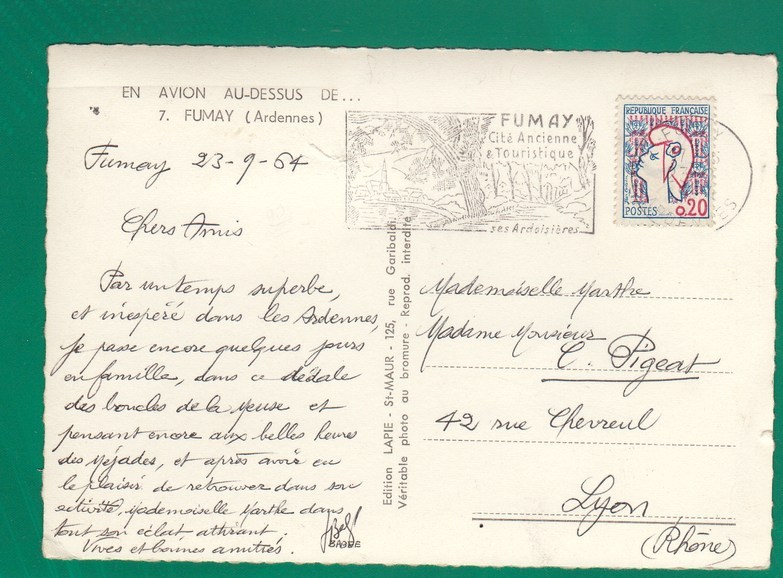 EN AVION AU-DESSUS DE...
7. FUMAY (Ardennes)
Fumay 23-9-64
Chers Amis
Par un temps superbe,
et inespéré dans les Ardennes,
je passe encore quelques jours
en famille, dans ce dédale
des boucles de la Meuse et
pensant encore aux belles heures
des Méjades, et après avoir eu
le plaisir de retrouver dans son
activité, Mademoiselle Marthe dans
tout son éclat attirant.
Vives et bonnes amitiés.
Edition LAPIE - St-MAUR - 125, rue Garibaldi.
Véritable photo au bromure - Reprod. interdite
FUMAY
Cité Ancienne
& Touristique
ses Ardoisières
REPUBLIQUE FRANÇAISE
POSTES 0,20
Mademoiselle Marthe
Madame Monsieur
C. Pigeat
42 rue Chevreul
Lyon
(Rhône)